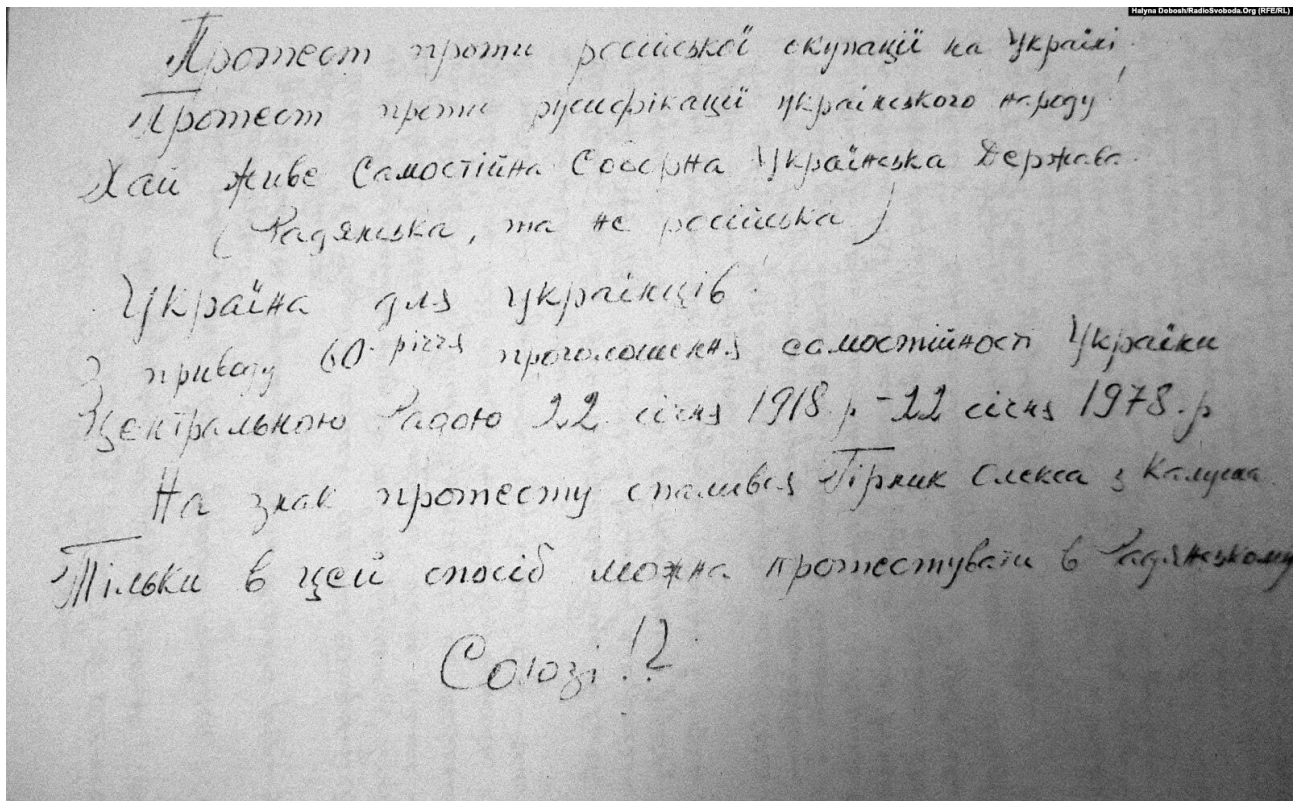 Halyna Dobosh/RadioSvoboda.Org (RFE/RL)
Протест проти російської окупації на Україні!
Протест проти русифікації українського народу!
Хай живе Самостійна Соборна Українська Держава.
(Радянська, та не російська)
Україна для українців!
З приводу 60-річчя проголошення самостійності України
Центральною Радою 22 січня 1918.р – 22 січня 1978.р
На знак протесту спалився Гірник Олекса з Калуша.
Тільки в цей спосіб можна протестувати в Радянському
Союзі!?